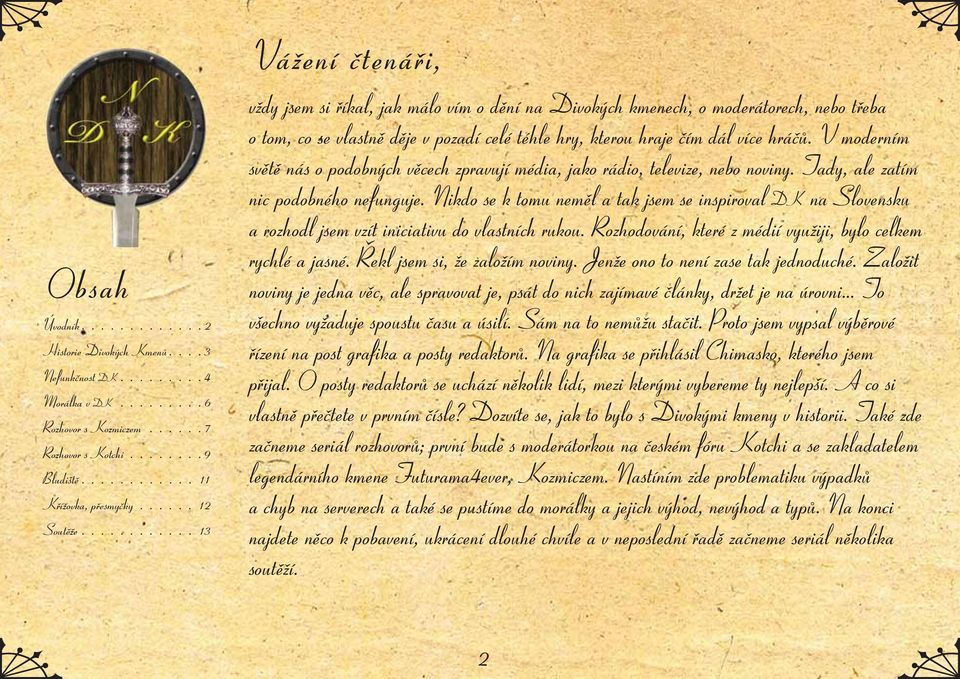 N
D K
Obsah
Úvodník . . . . . . . . . . . . . 2
Historie Divokých Kmenů . . . . 3
Nefunkčnost DK . . . . . . . . . 4
Morálka v DK . . . . . . . . . 6
Rozhovor s Kozmiczem . . . . . . 7
Rozhovor s Kotchi . . . . . . . . 9
Bludiště . . . . . . . . . . . . 11
Křížovka, přesmyčky . . . . . . 12
Soutěže . . . . . . . . . . . . 13
Vážení čtenáři,
vždy jsem si říkal, jak málo vím o dění na Divokých kmenech, o moderátorech, nebo třeba
o tom, co se vlastně děje v pozadí celé téhle hry, kterou hraje čím dál více hráčů. V moderním
světě nás o podobných věcech zpravují média, jako rádio, televize, nebo noviny. Tady, ale zatím
nic podobného nefunguje. Nikdo se k tomu neměl a tak jsem se inspiroval DK na Slovensku
a rozhodl jsem vzít iniciativu do vlastních rukou. Rozhodování, které z médií využiji, bylo celkem
rychlé a jasné. Řekl jsem si, že založím noviny. Jenže ono to není zase tak jednoduché. Založit
noviny je jedna věc, ale spravovat je, psát do nich zajímavé články, držet je na úrovni... To
všechno vyžaduje spoustu času a úsilí. Sám na to nemůžu stačit. Proto jsem vypsal výběrové
řízení na post grafika a posty redaktorů. Na grafika se přihlásil Chimasko, kterého jsem
přijal. O posty redaktorů se uchází několik lidí, mezi kterými vybereme ty nejlepší. A co si
vlastně přečtete v prvním čísle? Dozvíte se, jak to bylo s Divokými kmeny v historii. Také zde
začneme seriál rozhovorů; první bude s moderátorkou na českém fóru Kotchi a se zakladatelem
legendárního kmene Futurama4ever, Kozmiczem. Nastíním zde problematiku výpadků
a chyb na serverech a také se pustíme do morálky a jejich výhod, nevýhod a typů. Na konci
najdete něco k pobavení, ukrácení dlouhé chvíle a v neposlední řadě začneme seriál několika
soutěží.
2